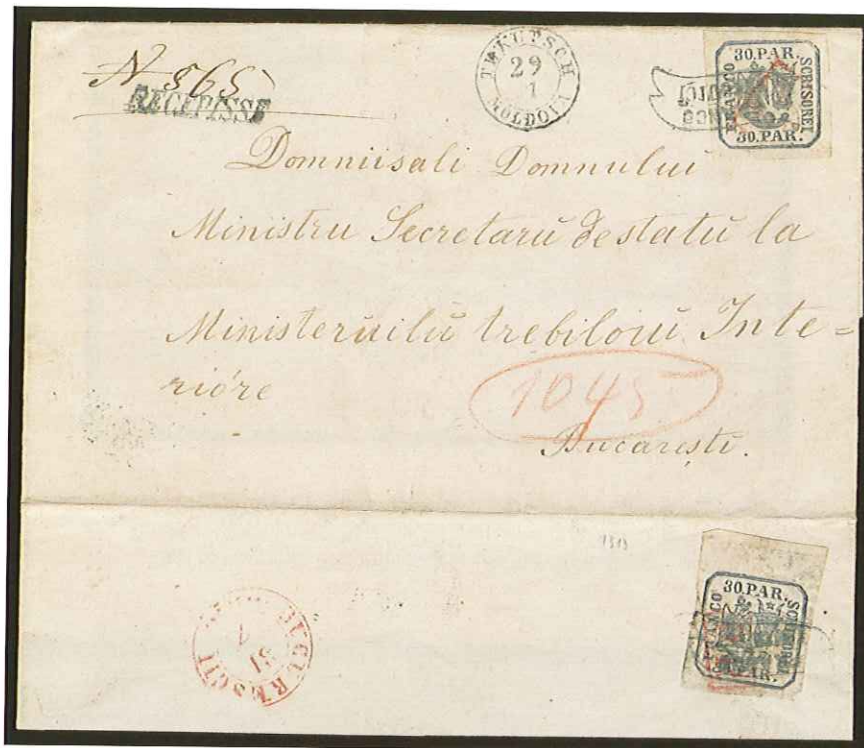 N 565
RECEPISSE
TEKUTSCH
29
1
MOLDOVA
30.PAR.
FRANCO
SCRISOREI
30.PAR.
Domniisali Domnului
Ministru Secretarŭ de statŭ la
Ministeruilŭ trebiloru Inte=
rióre
1045
Bucaresti.
1313
BUCURESCII
31
7
30.PAR.
FRANCO
SCRISOREI
30 PAR.